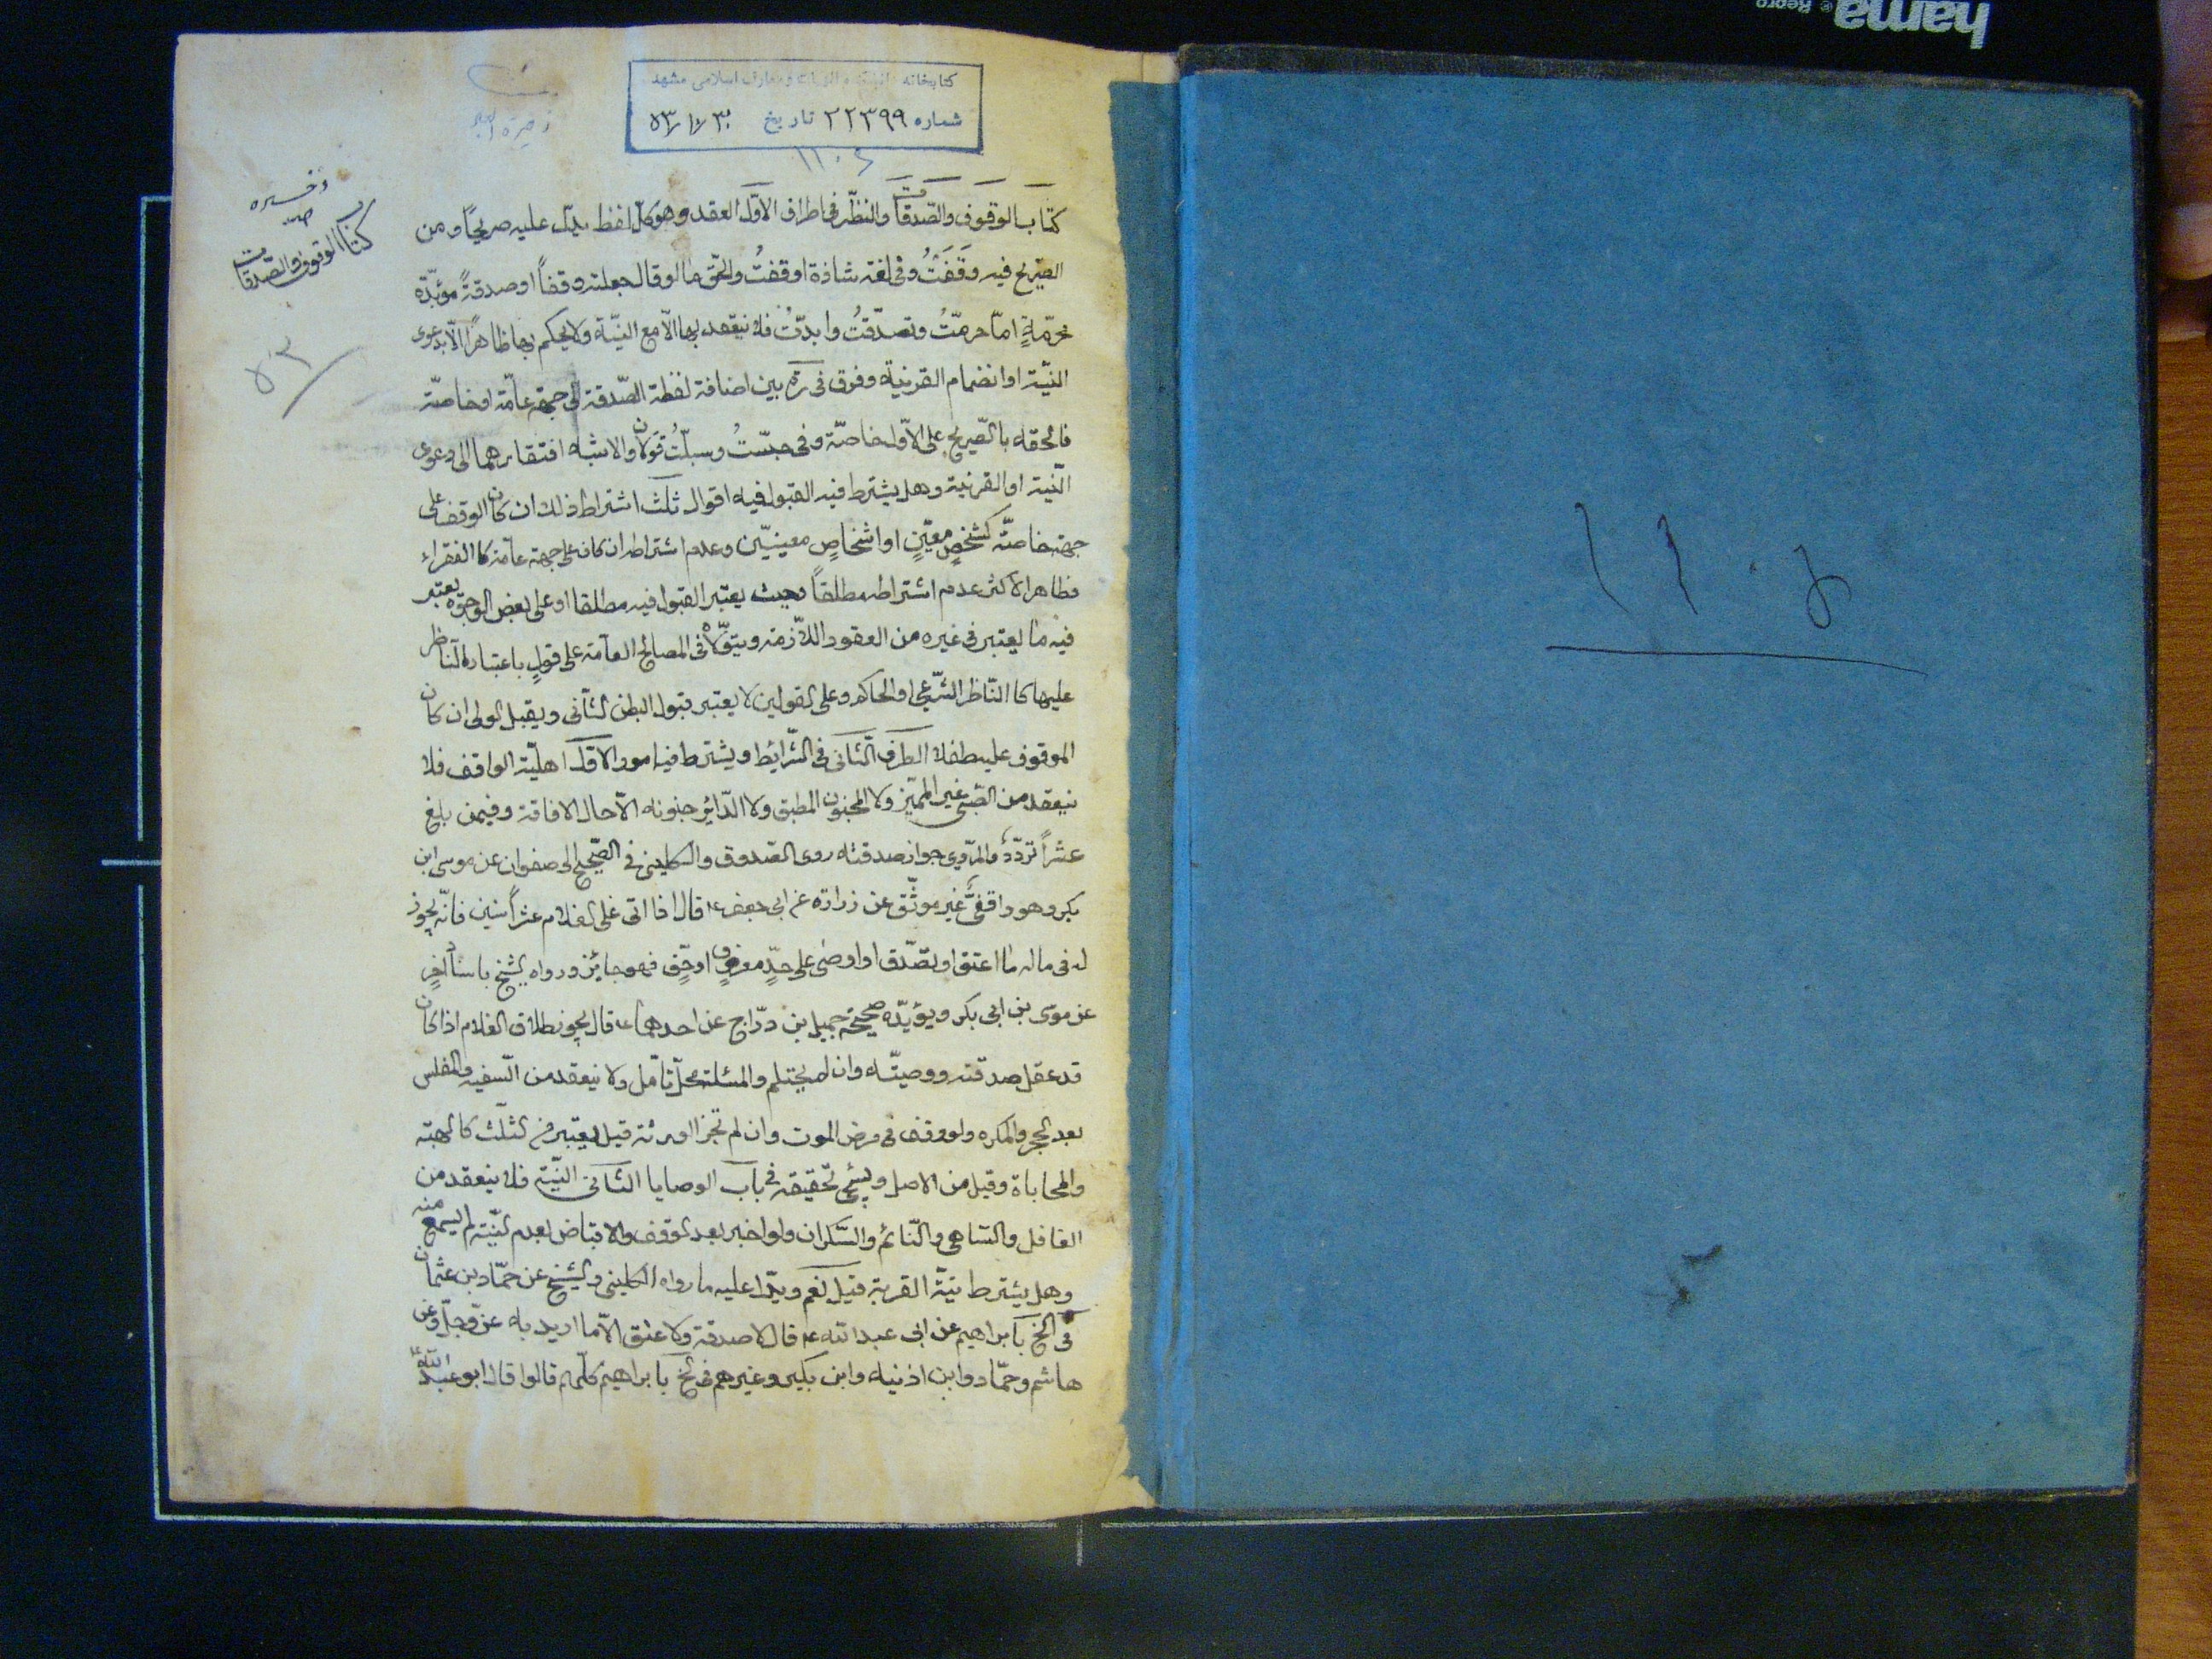 hama
® Repro
کتابخانه دانشکده الهیات و معارف اسلامی مشهد
شماره ۲۲۳۹۹ تاریخ
۱۱۰۶
کتاب الوقوف والصدقات
۵۳
کتاب الوقوف والصّدقات والنظر فی اطراف الاوّل العقد وهو کلّ لفظ یدلّ علیه صریحاً و من
الصریح فیه وَقَفتُ وفی لغة شاذة اوقفتُ والحق ما لو قال جعلته وقفاً او صدقةً مؤبّدة
محرّمةٍ امّا حرمّتُ وتصدّقتُ وابدّتُ فلا ینعقد بها الاّ مع النیّة ولا یحکم بها ظاهراً الاّ بدعوی
النیّة او انضمام القرنیة وفرق فی کره بین اضافة لفظة الصّدقة الی جهة عامّة او خاصّة
فالحقه بالصّریح علی الاوّل خاصّة وفی حبّستُ وسبلّتُ قولان والاشبه افتقارهما الی دعوی
النّیة او القرنیة وهل یشترط فیه القبول فیه اقوال ثلث اشتراط ذلك ان کان الوقف علی
جهة خاصّة کشخصٍ معیّنٍ او اشخاصٍ معینیّن وعدم اشتراطه ان کان علی جهة عامّة کا الفقراء
فظاهر الاکثر عدم اشتراطه مطلقاً وحیث یعتبر القبول فیه مطلقا او علی بعض الوجوه یعتبر
فیه ما یعتبر فی غیره من العقود اللاّزمة ویتولّاه فی المصالح العامّة علی قولٍ باعتباره النّاظر
علیها کا النّاظر الشّرعی او الحاکم وعلی القولین لا یعتبر قبول البطن الثّانی ویقبل الولی ان کان
الموقوف علیه طفلا الطرف الثّانی فی الشّرایط ویشترط فیه امور الاوّل اهلیّة الواقف فلا
ینعقد من الصّبی غیر الممیّز ولا المجنون المطبق ولا الدّائر جنونه الاّ حال الافاقة وفیمن بلغ
عشراً تردّدٌ والمرّوی جواز صدقته روی الصّدوق والکلینی فی الصّحیح الی صفوان عن موسی ابن
بکر وهو واقفیٌّ غیر موثّق عن زراره عن ابی جعفر ع قال اذا اتی علی الغلام عشر سنین فانّه یجوز
له فی ماله ما اعتق او تصّدق او اوصی علی حدٍّ معروفٍ او حقٍّ فهو جائز و رواه الشیخ باسناد آخر
عن موسی بن ابی بکر ویؤیّده صحیحة جمیل بن درّاج عن احدهما ع قال یجوز طلاق الغلام اذا کان
قد عقل صدقته ووصیّته وان لم یحتلم والمسئلة محلّ تأمّل ولا ینعقد من السّفیه والمفلس
بعد الحجر والمکره ولو وقف فی مرض الموت وان لم تجز الورثة قیل یعتبر من الثلث کالهبة
والمحاباة وقیل من الاصل وسیجیء تحقیقه فی باب الوصایا الثانی النیّة فلا ینعقد من
الغافل والسّاهی والنّائم والسّکران ولو اخبر بعد الوقف والاقباض بعدم النیّة لم یسمع منه
وهل یشترط نیّة القربة قیل نعم ویدلّ علیه ما رواه الکلینی والشیخ عن حمّاد بن عثمان
فی الحَ بابراهیم عن ابی عبد الله ع قال لا صدقة ولا عتق الاّ ما ارید به عزّ وجلّ وعن
هاشم وحمّاد وابن اذنیه وابن بکیر وغیرهم فی الحَ بابراهیم کلّهم قالوا قال ابو عبد الله ع
۱۱۰۶